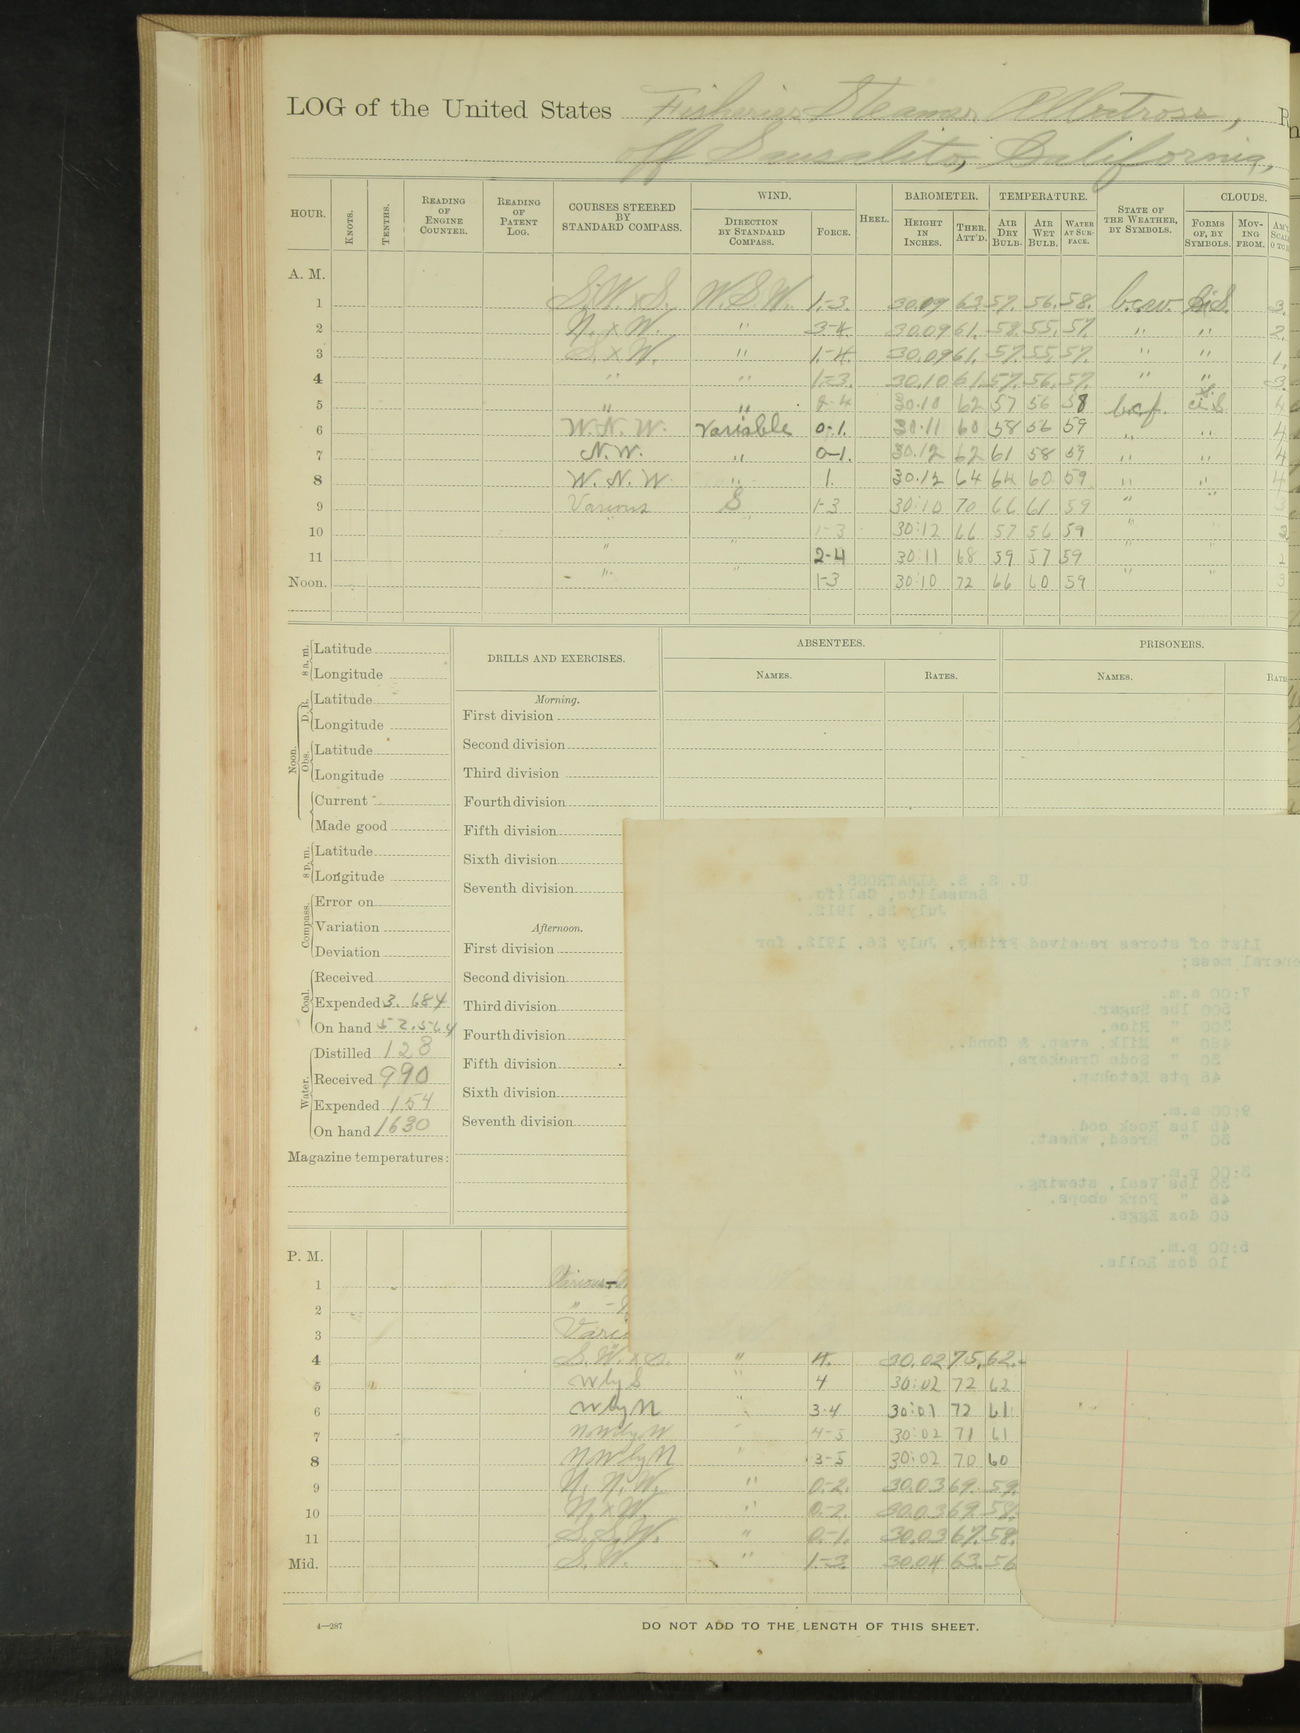 LOG of the United States Fisheries Steamer Albatross, R
off Sausalito, California,
HOUR. KNOTS. TENTHS. READING OF ENGINE COUNTER. READING OF PATENT LOG. COURSES STEERED BY STANDARD COMPASS. WIND. DIRECTION BY STANDARD COMPASS. FORCE. HEEL. BAROMETER. HEIGHT IN INCHES. THER. ATT'D. TEMPERATURE. AIR DRY BULB. AIR WET BULB. WATER AT SURFACE. STATE OF THE WEATHER, BY SYMBOLS. CLOUDS. FORMS OF, BY SYMBOLS. MOVING FROM.
A. M.
1 S.W. x S. W.S.W. 1-3. 30.09 63. 57. 56. 58. b.c.w. Ci.S. 3.
2 N. x W. " 3-4. 30.09 61. 58. 55. 57. " " 2.
3 S. x W. " 1-4. 30.09 61. 57. 55. 57. " " 1.
4 " " 1-3. 30.10 61. 57. 56. 57. " " 3.
5 " " 2-4 30.10 62 57 56 58 b.c.f. ci S. 4
6 W. N. W. Variable 0-1. 30.11 60 58 56 59 " " 4
7 N. W. " 0-1. 30.12 62 61 58 59 " " 4
8 W. N. W " 1. 30.12 64 64 60 59 " " 4
9 Various S 1-3 30:10 70 66 61 59 " " 3
10 " " 1-3 30:12 66 57 56 59 " " 3
11 " " 2-4 30:11 68 59 57 59 " " 2
Noon. " " 1-3 30:10 72 66 60 59 " " 3
DRILLS AND EXERCISES. ABSENTEES. PRISONERS.
NAMES. RATES. NAMES.
8 a.m. Latitude
Longitude
Noon. D. R. Latitude
Longitude
Obs. Latitude
Longitude
Current
Made good
8 p.m. Latitude
Longitude
Compass. Error on
Variation
Deviation
Coal. Received
Expended 3. 684
On hand 52.564
Water. Distilled 128
Received 990
Expended 154
On hand 1630
Magazine temperatures:
Morning.
First division
Second division
Third division
Fourth division
Fifth division
Sixth division
Seventh division
Afternoon.
First division
Second division
Third division
Fourth division
Fifth division
Sixth division
Seventh division
U. S. S. ALBATROSS,
Sausalito, Califo.,
July 26, 1912.
List of stores received Friday, July 26, 1912, for
general mess:
7:00 a.m.
500 lbs Sugar.
300 " Rice.
480 " Milk, evap. & Cond.,
30 " Soda Crackers,
48 pts Ketchup.
9:00 a.m.
45 lbs Rock cod.
30 " Bread, wheat.
3:00 p.m.
30 lbs Veal, stewing.
45 " Pork chops.
60 doz Eggs.
5:00 p.m.
10 doz Rolls.
P. M.
1 Various
2 "
3 Vari
4 S. W. x S. " 4. 30.02 75. 62.
5 W by S " 4 30:02 72 62
6 W by N " 3-4 30:01 72 61
7 NW by W " 4-5 30:02 71 61
8 NW by N " 3-5 30:02 70 60
9 N. N. W. " 0-2. 30.03 69. 59.
10 N. x W. " 0-2. 30.03 69. 58.
11 S. S. W. " 0-1. 30.03 67. 58.
Mid. S. W. " 1-3. 30.04 63. 56
4—287
DO NOT ADD TO THE LENGTH OF THIS SHEET.